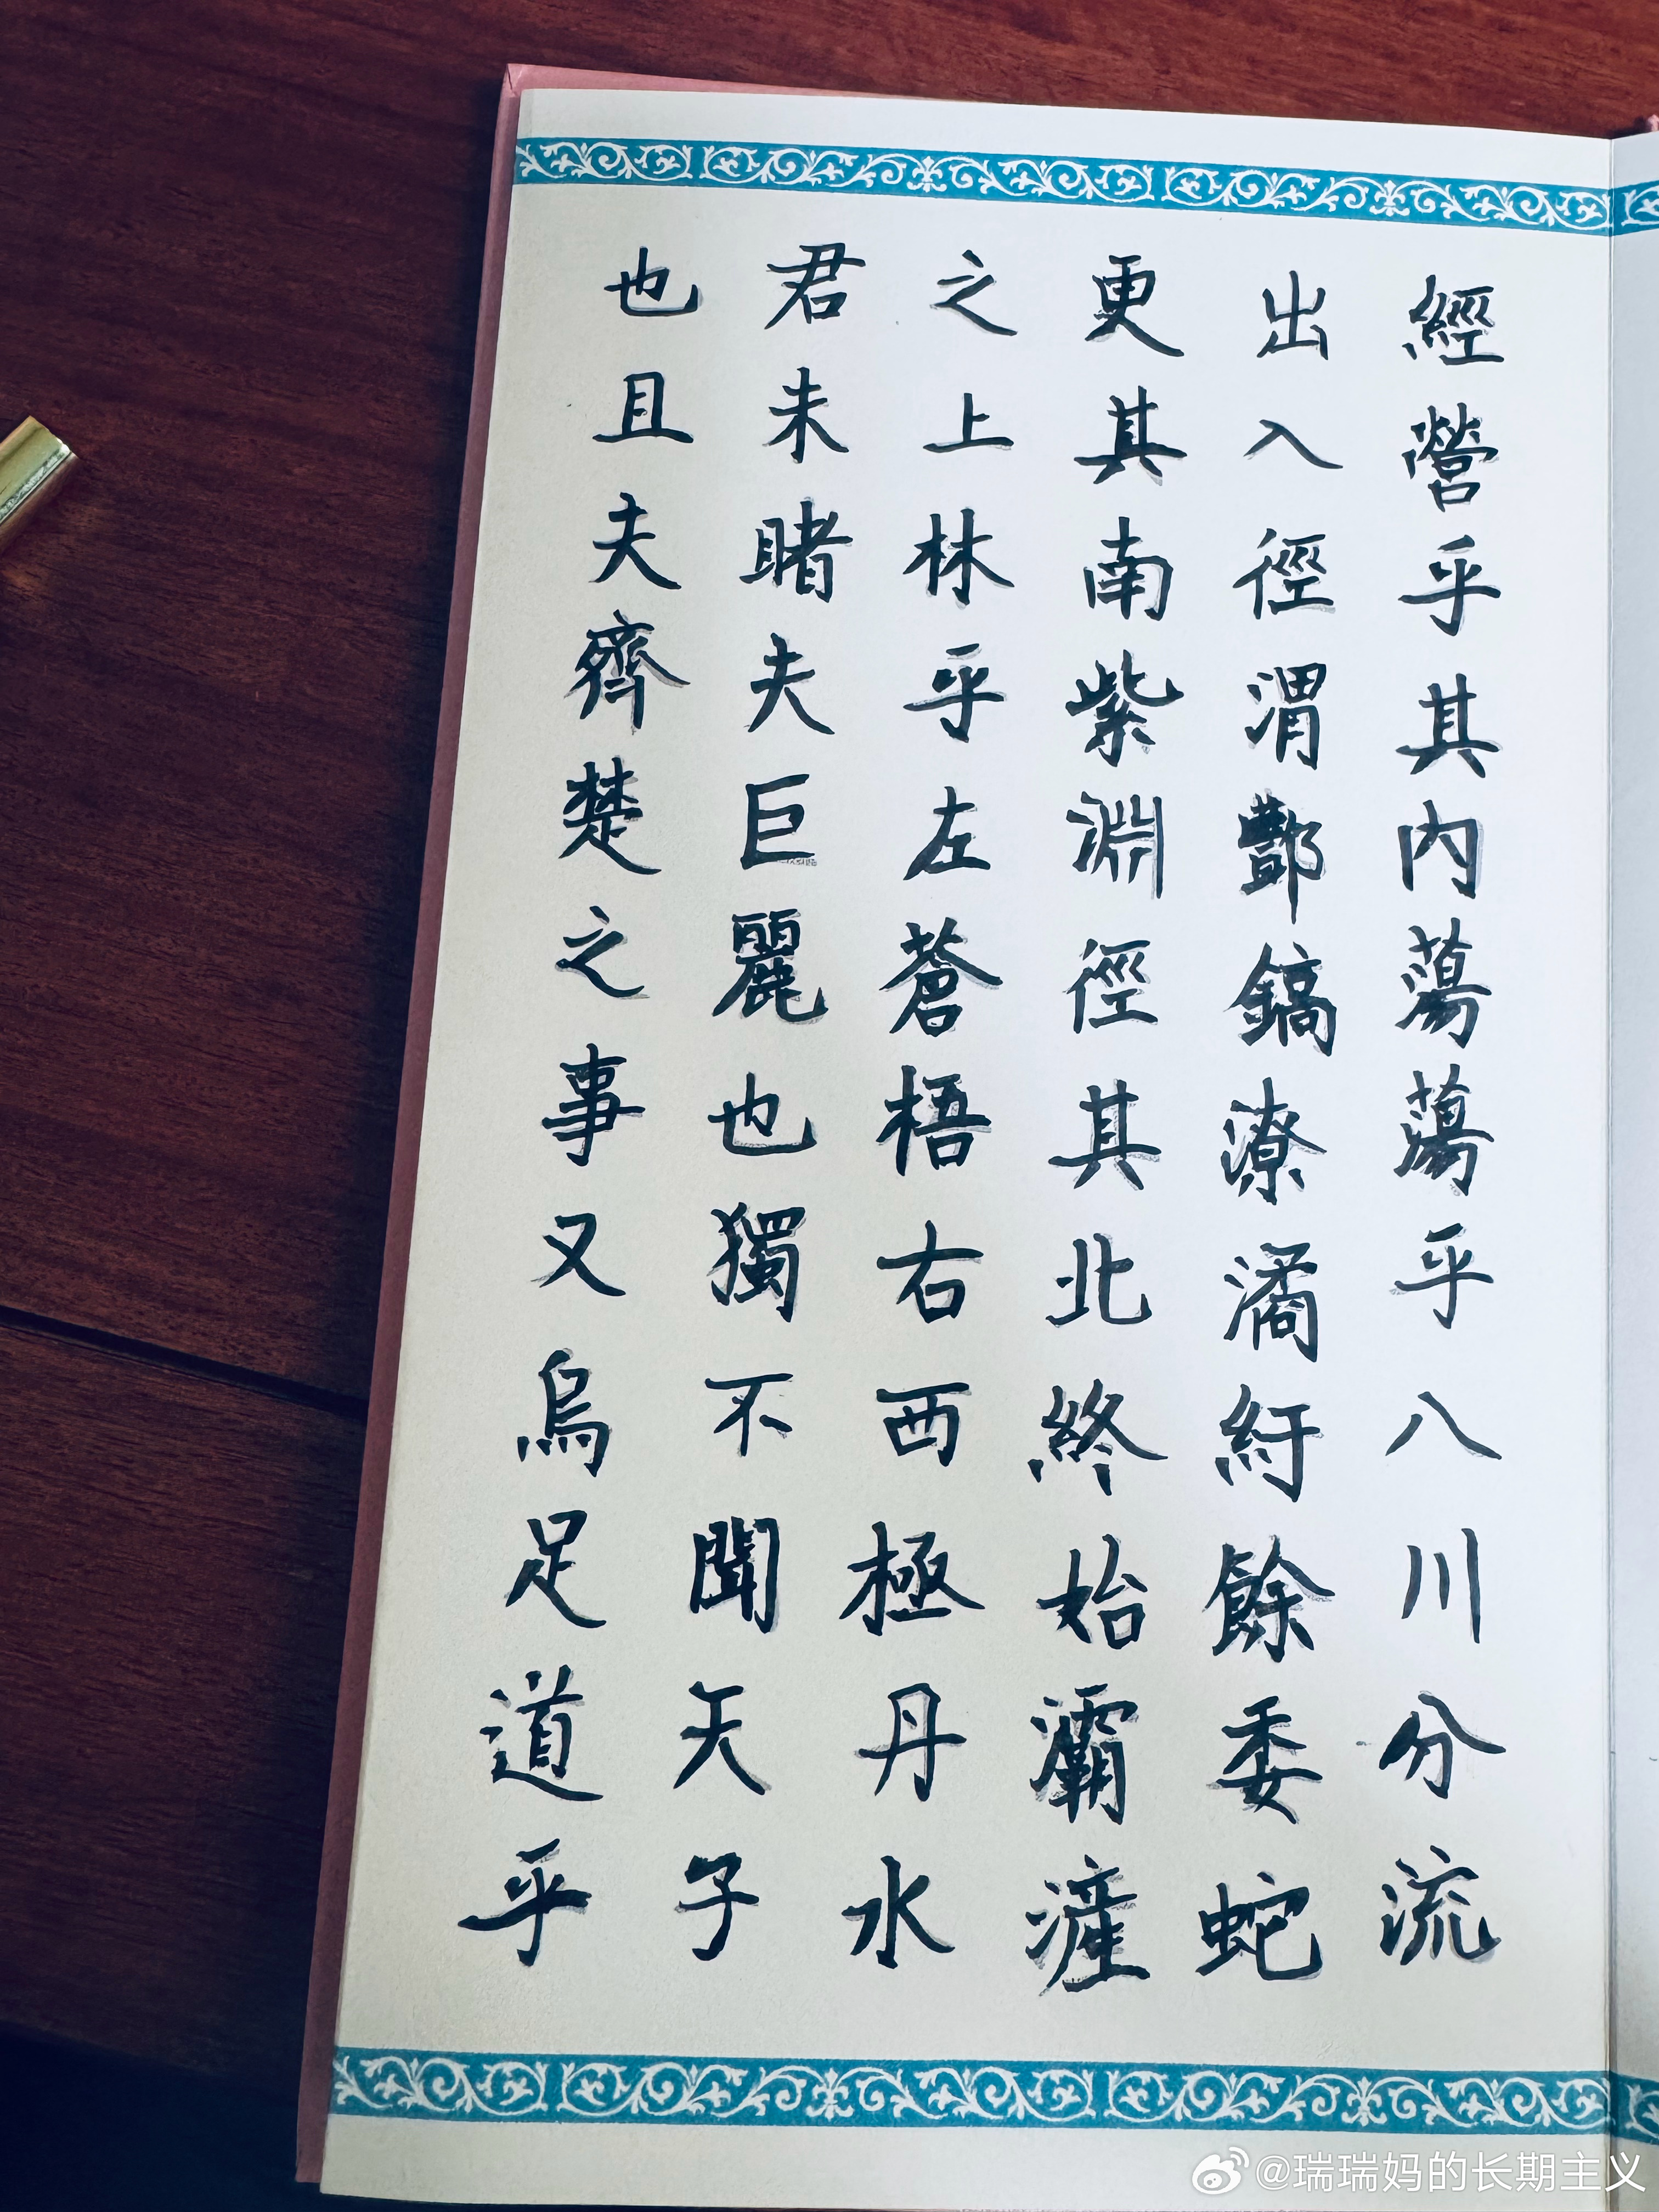 也且夫齊楚之事又烏足道乎
君未睹夫巨麗也獨不聞天子
之上林乎左蒼梧右西極丹水
更其南紫淵徑其北終始灞滻
出入徑渭酆鎬潦潏紆餘委蛇
經營乎其內蕩蕩乎八川分流
@瑞瑞妈的长期主义